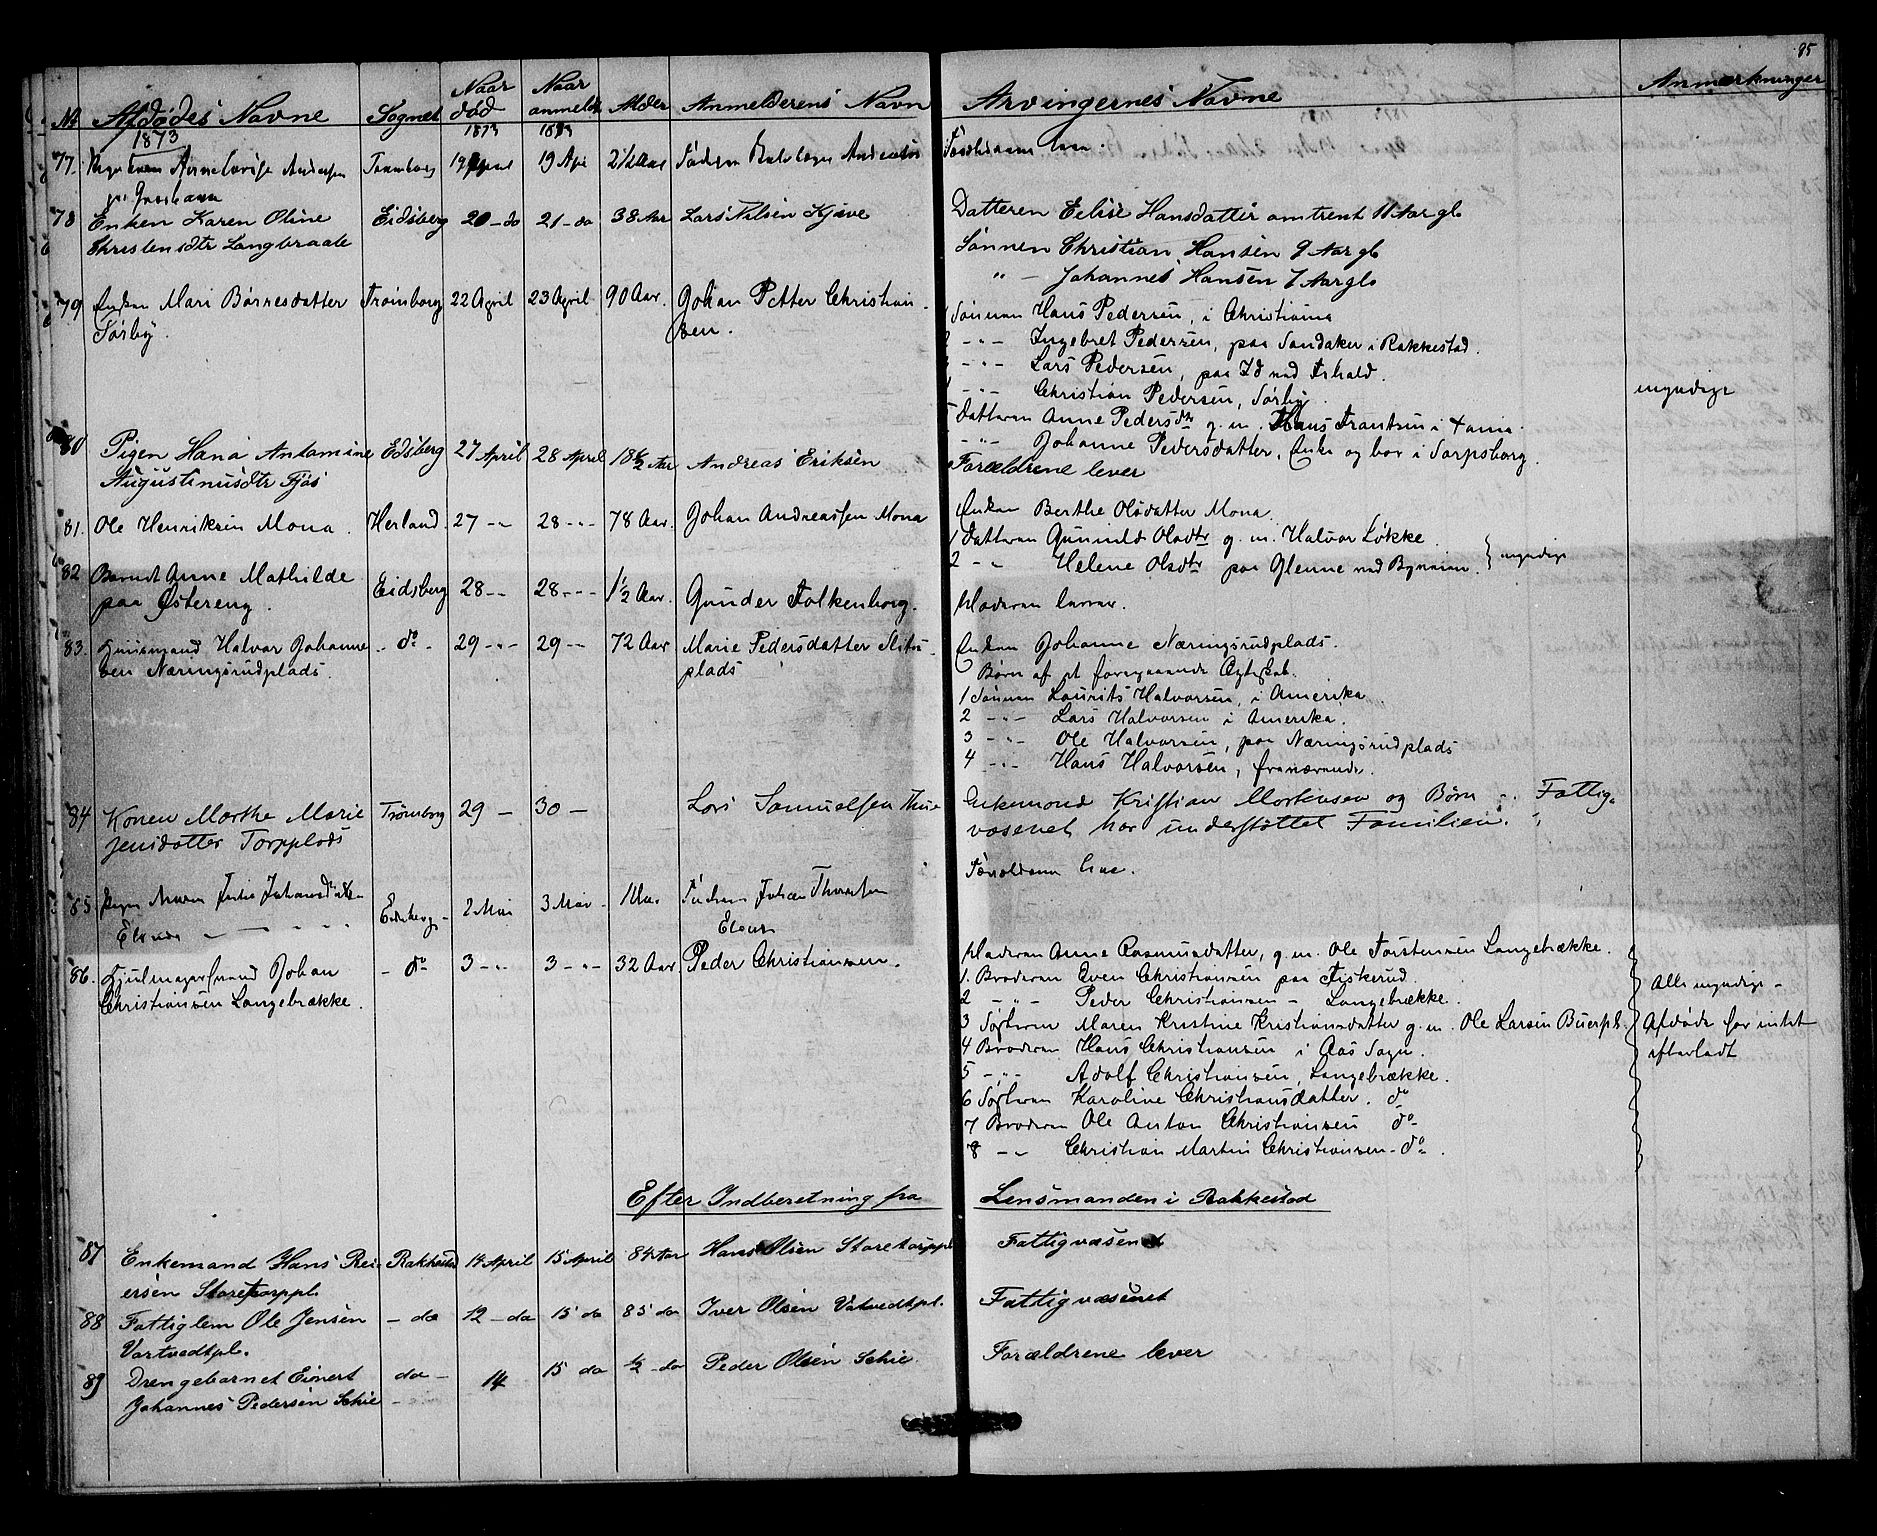 85
No Afdødes Navne Sognet Naar død Naar anmeldt Alder Anmelderens Navn Arvingernes Navne Anmærkninger
1873 1873 1873
77. Andersen Trømborg 19 April 19 Apr 2½ Aar Faderen Andersen Forældrene leve.
78 Enken Karen Oline Eidsberg 20 - do 21 - do 38 Aar Lars Nilsen Kjøve Datteren Eelise Hansdatter omtrent 11 Aar gl
Christensdtr Langbraate Sønnen Christian Hansen 9 Aar gl
" - Johannes Hansen 7 Aar gl
79 Enken Mari Børresdatter Trømborg 22 April 23 April 90 Aar. Johan Petter Christian-
Sørby. sen. 1 Sønnen Hans Pedersen, i Christiania
2 - " - Ingebret Pedersen, paa Sandaker i Rakkestad.
3 - " - Lars Pedersen, paa Id ved Frhald.
4 - " - Christian Pedersen, Sørby. myndige
5 Datteren Anne Pedersdtr g. m. Hans Frantsen i
- " - Johanne Pedersdatter, Enke og bor i Sarpsborg.
80 Pigen Hana Antamine Edsberg 27 April 28 April 18½ Aar Andreas Eriksen Forældrene lever
Augustinusdtr Fjøs
81. Ole Henriksen Mona. Herland 27 - " 28 - " - 78 Aar. Johan Andreassen Mona Enken Berthe Olsdatter Mona.
1 Datteren Gunnild Olsdtr g. m. Halvor Løkke.
2 - " Helene Olsdtr paa Glenne ved Bymaien. } myndige
82 Barnet Anne Mathilde Eidsberg 28 - " 28 - " - 1½ Aar. Gunder Folkenborg. Moderen lever.
paa Østereng.
83. Huusmand Halvor Johanne- - do - 29 - " - 29 - " 72 Aar Marie Pedersdatter Enken Johanne Næringsrudplads.
sen Næringsrudplads. plads Børn af et foregaaende Ægteskab.
1 Sønnen Laurits Halvorsen, i Amerika
2 - " - Lars Halvorsen i Amerika.
3 - " - Ole Halvorsen, paa Næringsrudplads
4 - " - Hans Halvorsen, fraværende.
84 Konen Marthe Marie Trømborg 29 - 30 - Lars Samuelsen Thue Enkemand Kristian Mortensen og Børn. Fattig-
Jensdatter Torpplads væsenet har understøttet Familien.
85 Pigen Maren Julie Johansdatter Eidsberg - 2 Mai 3 Mai - 1 Aar Faderen Johan Thoresen Forældrene leve.
86. Hjulmager Johan - do 3 - " 3 - " - 32 Aar Peder Christiansen. Moderen Anne Rasmusdatter, g. m. Ole Torstensen Langebrække.
Christiansen Langebrække. 1. Broderen Even Christiansen paa Fiskerud.
2 - " - Peder Christiansen - Langebrække. Alle myndige -
3 Søsteren Maren Kristine Kristiansdatter g. m. Ole Larsen Buerpl. Afdøde har intet
4 Broderen Hans Christiansen i Aas Sogn. efterladt
5 - " - Adolf Christiansen, Langebrække.
6 Søsteren Karoline Christiansdatter. do
7 Broderen Ole Anton Christiansen do
8 - " Christian Martin Christiansen - do
Efter Indberetning fra Lensmanden i Rakkestad
87 Enkemand Hans Rei- Rakkestad 14 April 15 April 84 Aar Hans Olsen Storetorppl Fattigvæsenet
ersen Storetorppl.
88 Fattiglem Ole Jensen - do 12 - do 15 do 85 do Iver Olsen Vatvedtpl. Fattigvæsenet
Vartvedtpl.
89 Drengebarnet Einert do - 14 15 do ½ - do Peder Olsen Schie. Forældrene lever
Johannes Pedersen Schie -